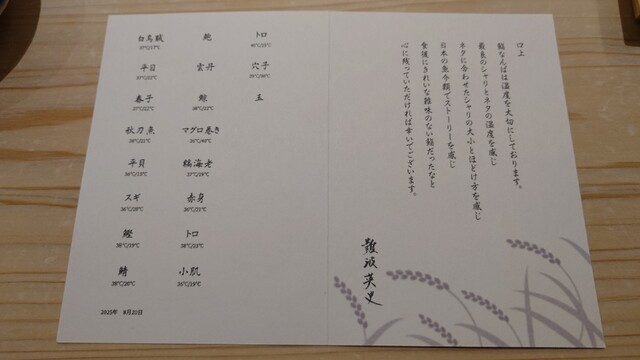 白烏賊
37℃/17℃
平目
37℃/22℃
春子
37℃/22℃
秋刀魚
38℃/21℃
平貝
36℃/13℃
スギ
36℃/20℃
鰹
38℃/19℃
鯖
38℃/20℃
鮑
雲丹
鯨
38℃/22℃
マグロ巻き
36℃/40℃
縞海老
37℃/20℃
赤身
36℃/21℃
トロ
38℃/23℃
小肌
36℃/19℃
トロ
40℃/25℃
穴子
39℃/36℃
玉
2025年 8月21日
口上
鮨なんばは温度を大切にしております。
最良のシャリとネタの温度を感じ
ネタに合わせたシャリの大小とほどけ方を感じ
日本の魚今類でストーリーを感じ
食後にきれいな雑味のない鮨だったなと
心に残っていただければ幸いでございます。
難波英史